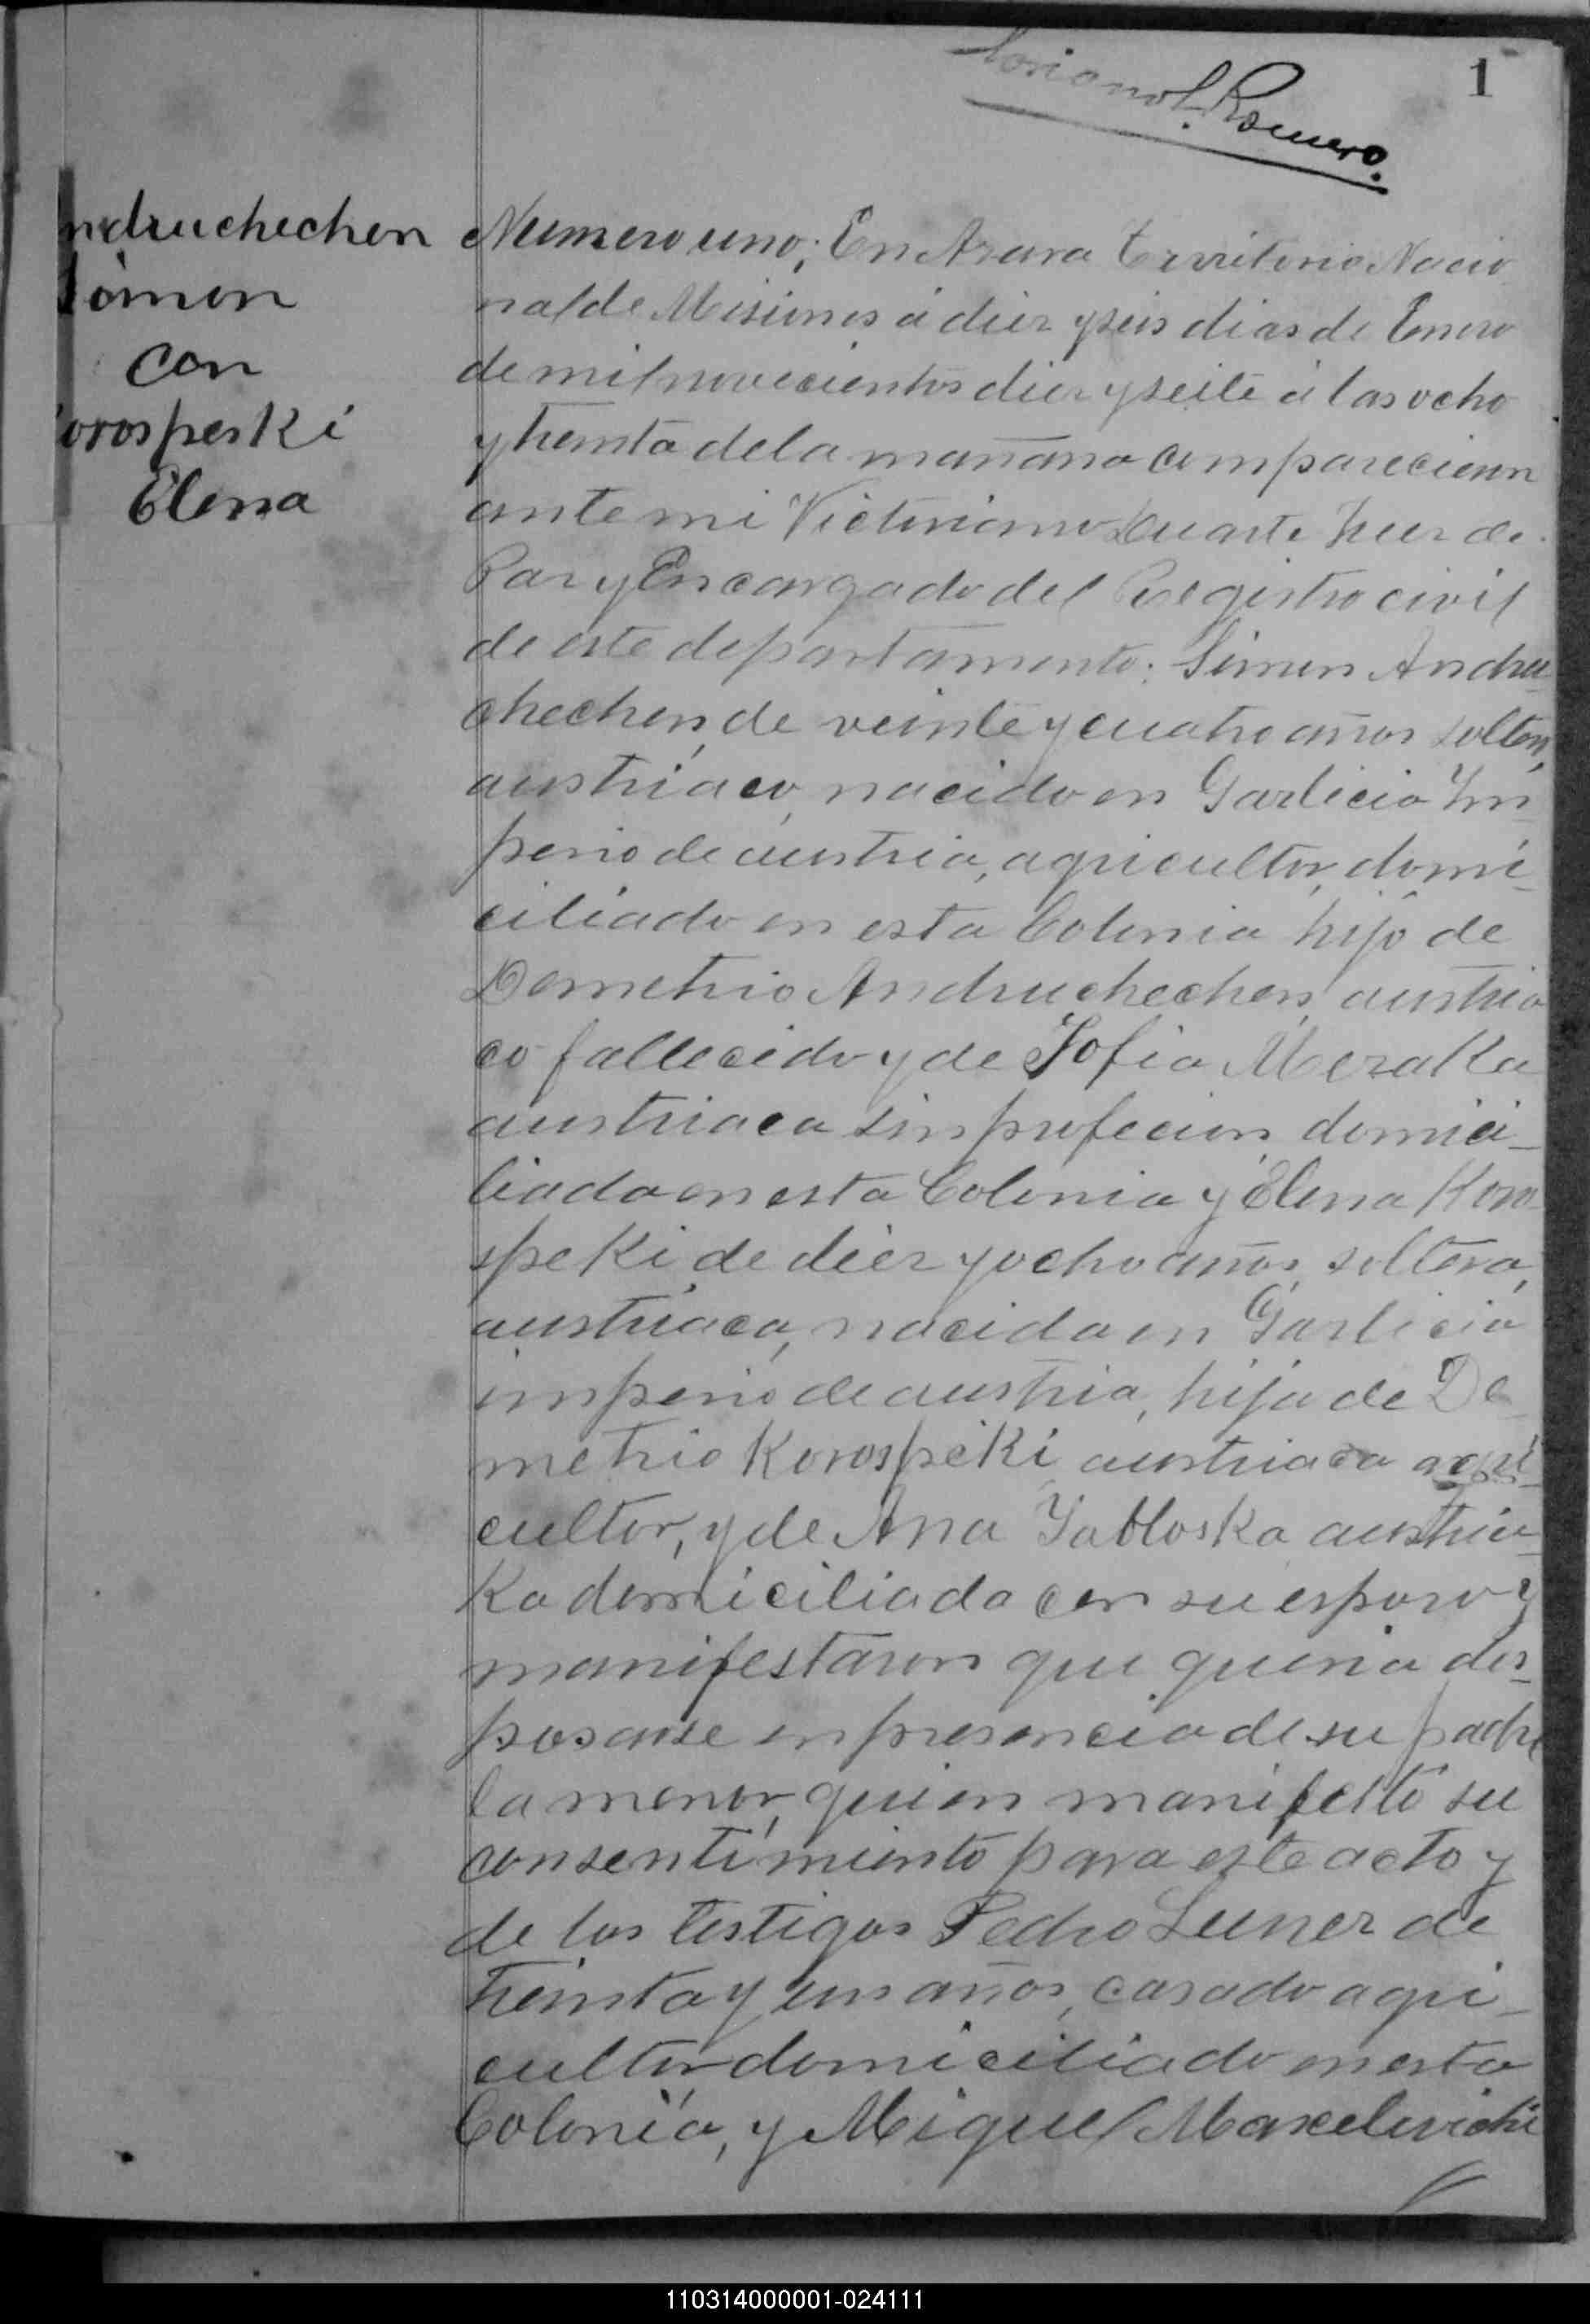 1
Romero.
ndruchechen
Simon
con
orospeski
Elena
Numero uno; En Azara Territorio Nacio
nal de Misiones á diez y seis dias de Enero
de mil novecientos diez y seite á las ocho
y treinta de la mañana comparecieron
ante mi Victoriano Duarte Juez de
Paz y Encargado del Registro civil
de este departamento: Simon Andru
chechen, de veinte y cuatro años soltero,
austriaco, nacido en Garlicia Im
perio de austria, agricultor, domi-
ciliado en esta Colonia hijo de
Demetrio Andruchechen, austria
co fallecido y de Sofia Meralla
austriaca sin profecion, domici-
liada en esta Colonia y Elena Koro
speki de diez y ocho años, soltera,
austriaca, nacida en Garlicia
imperio de austria, hija de De
metrio Korospeki, austriaca agri-
cultor, y de Ana Yabloska austria-
ka domiciliada con su esposo y
manifestaron que queria des-
posarse en presencia de su padre
la menor, quien manifestó su
consentimiento para este acto y
de los testigos Pedro Luner de
treinta y un años, casado agri-
cultor domiciliado en esta
Colonia, y Miguel
110314000001-024111